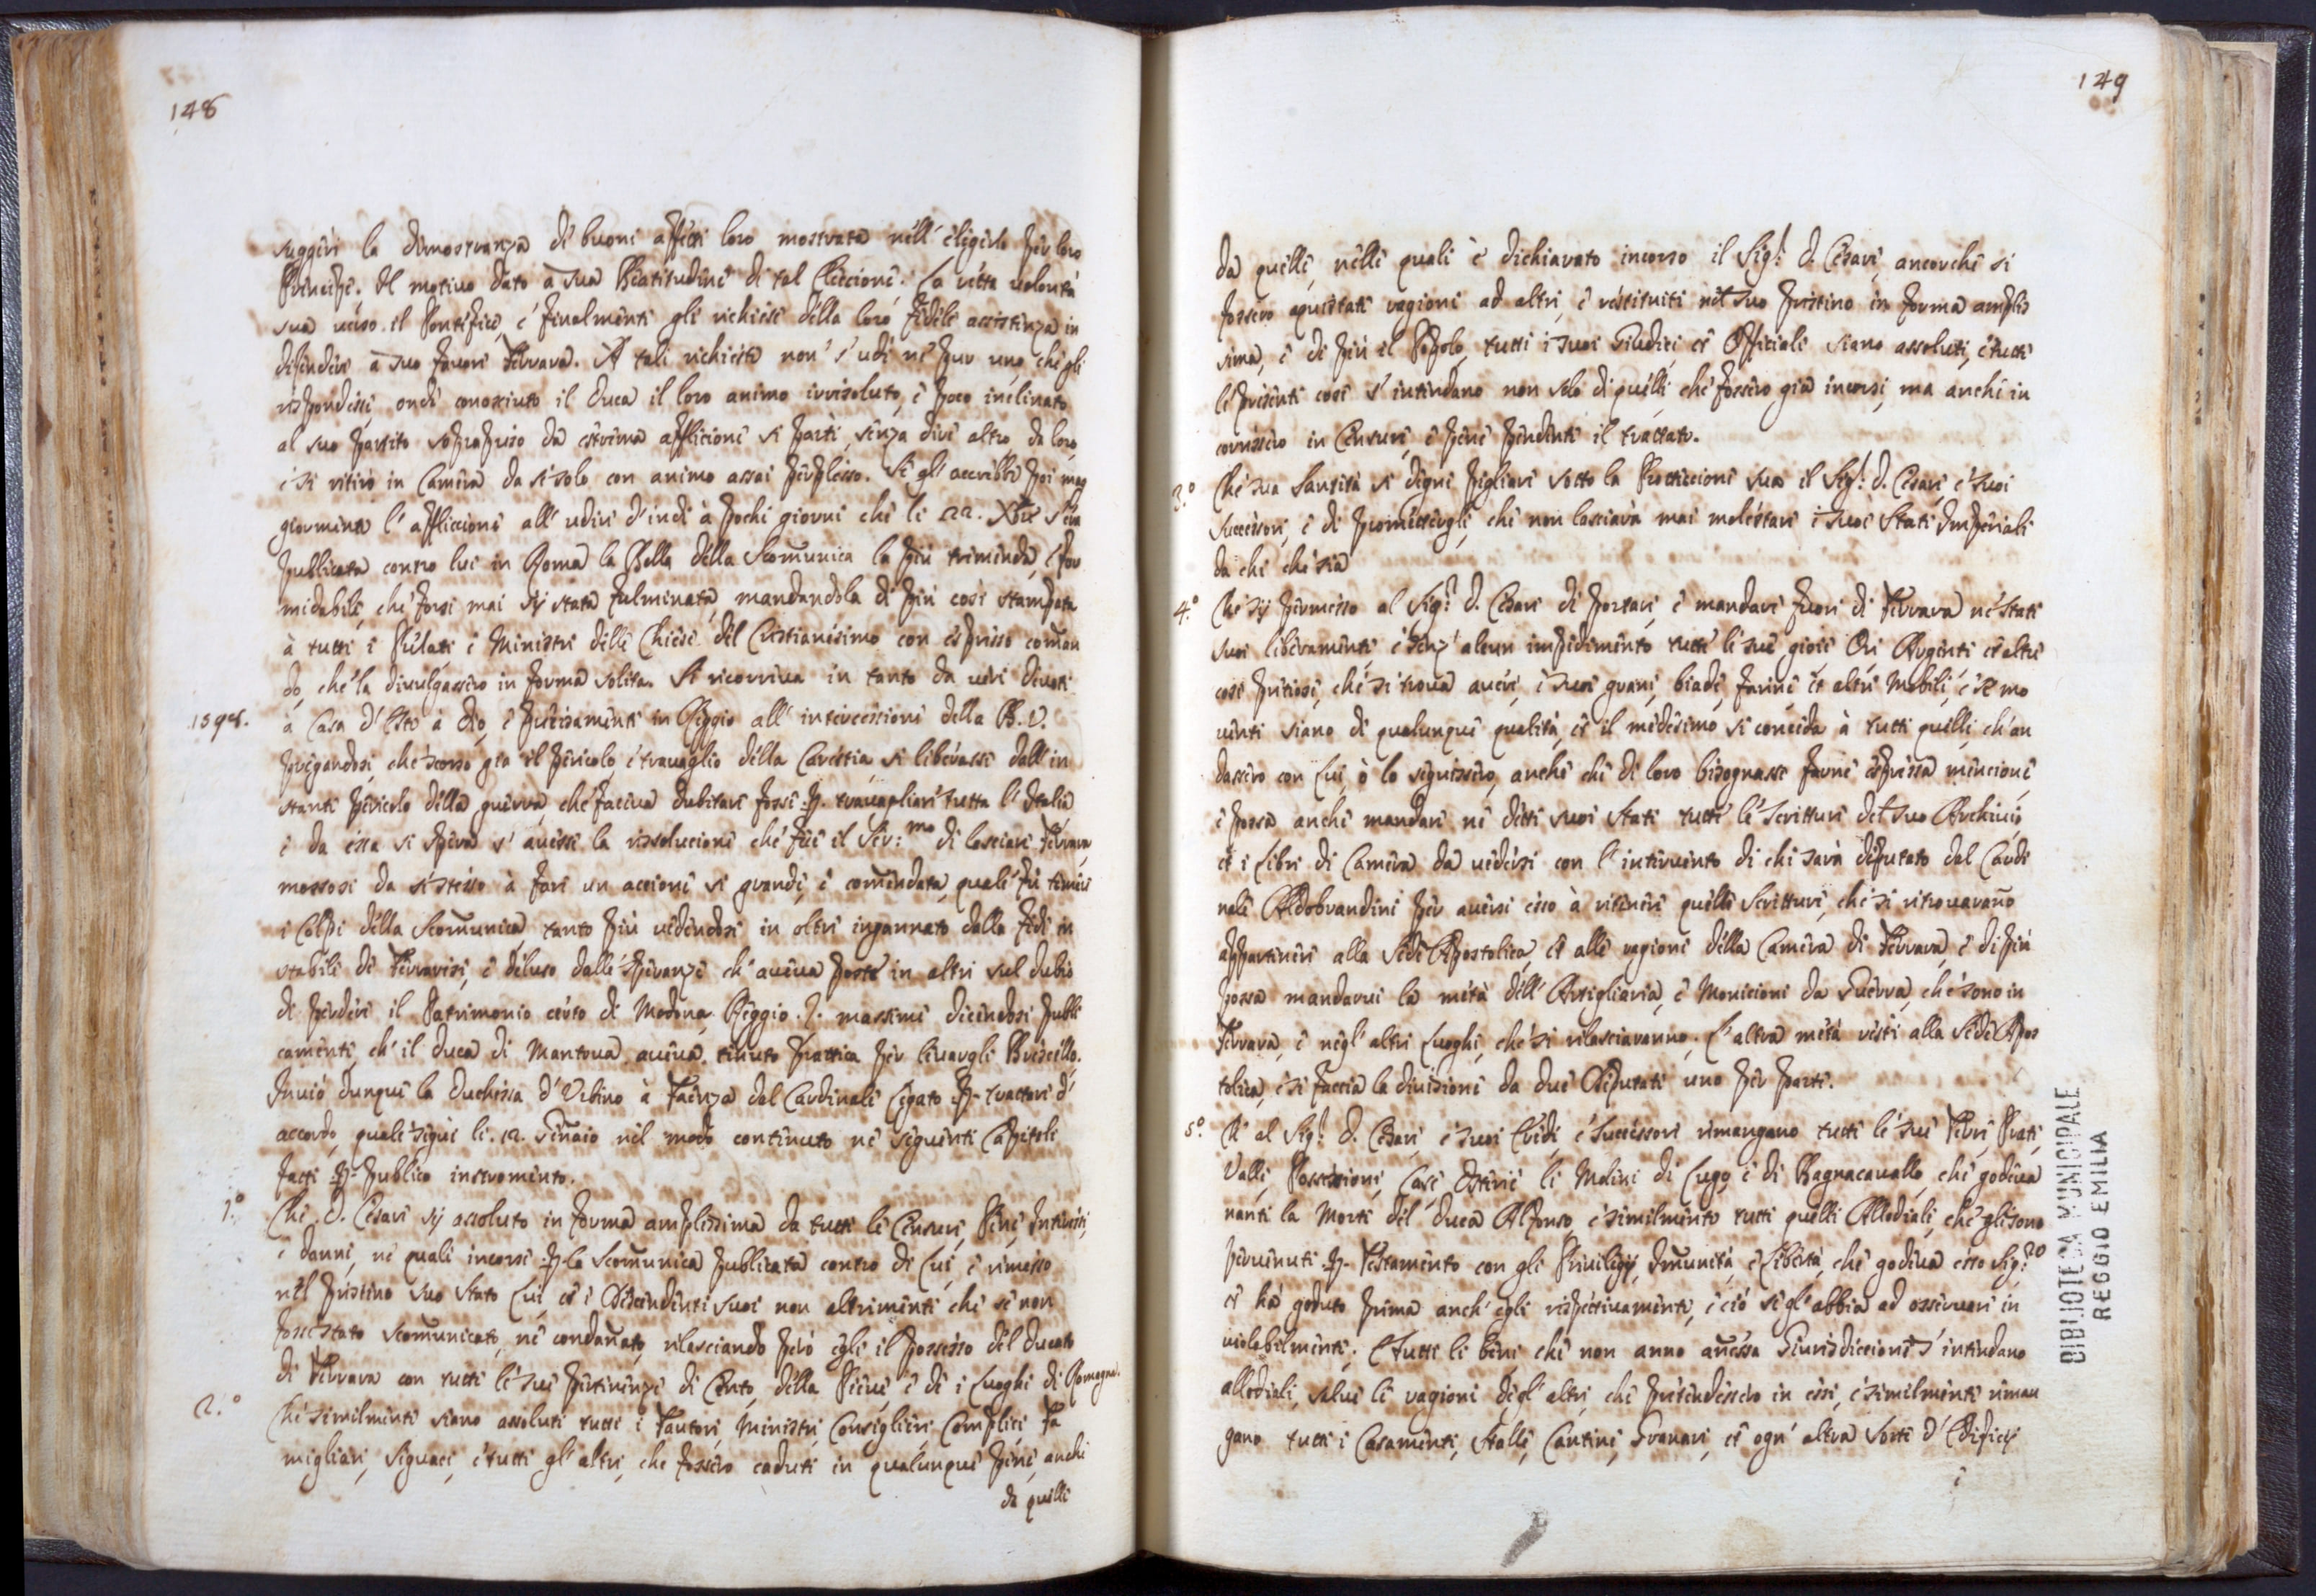 148
suggeri la dimostranza de buoni affetti loro mostrata nell' eligerlo per loro
Principe. Il motivo dato à sua Beatitudine di tal Eleccione. La retta volontà
sua verso il Pontefice, e finalmente gli richiese della loro fidele assistenza in
difendere à suo favore Ferrara. A tale richiesta non s' udì ne pur uno, che gli
rispondesse, onde conosciuto il Duca il loro animo irrisoluto, e poco inclinato
al suo partito soprapreso da estrema afflicione si partì, senza dire altro, da loro,
e si ritirò in Camera da se solo con animo assai perplesso. Se gl' accrebbe poi mag
giormente l' affliccione all' udire d' indi à pochi giorni che li 22. Xbre s' era
publicata contro lui in Roma la Bolla della Scom̄unica la più tremenda, e for
midabile, che forsi mai sij stata fulminata, mandandola di più così stampata
à tutti i Prelati e Ministri delle Chiese del Cristianesimo con espresso com̄an
do, che la divulgassero in forma solita. Si ricorreva in tanto da veri divoti
1598.
à Casa d' Este à Dio, e precisamente in Reggio all' intercessione della B. V.
pregandosi, che scorso già il pericolo, e travaglio della Carestia, si liberasse dall' in
stante pericolo della guerra, che faceva dubitare fosse p. travagliare tutta l' Italia
e da essa si spera s' avesse la rissoluccione che fece il Ser:mo di lasciare Ferrara,
mossosi da se stesso à fare un accione si grande, e comendata, quale fù temere
i Colpi della Scom̄unica, tanto più vedendosi in oltre ingannato dalla fede in
stabile de Ferraresi, e deluso dalle speranze ch' aveva poste in altri sul dubio
di perdere il Patrimonio certo di Modona, Reggio. &. massime dicendosi publi
camente, ch' il Duca di Mantova aveva tenuto prattica per levargli Brescello.
Inviò dunque la Duchessa d' Urbino à Faenza dal Cardinale Legato p. trattare d'
accordo, quale seguì li. 12. Gen̄aio nel modo contenuto ne seguenti Capitoli
fatti p. publico instromento.
1.º
Che D. Cesare sij assoluto in forma amplissima da tutte le Censure, Pene, Interessi,
e danni, ne quali incorse p. la Scom̄unica publicata contro di Lui, e rimesso
nel pristino suo stato Lui, et i Descendenti suoi non altrimente che se non
fosse stato scom̄unicato, ne condan̄ato, rilasciando però egli il possesso del Ducato
di Ferrara con tutte le sue pertinenze di Cento, della Pieve, e de i Luoghi di Romagna.
2.º
Che similmente siano assoluti tutti i Fautori, Ministri, Consiglieri, Complici, Fa
migliari, Seguaci, e tutti gl' altri, che fossero caduti in qualunque pene, anche
da quelle
149
da quelle, nelle quali è dichiarato incorso il Sig.r D. Cesare, ancorche si
fossero aquistate ragioni ad altri, e restituiti nel suo pristino in forma amplis
sima, e di più il Popolo, tutti i suoi Giudici et Officiali siano assoluti, e tutte
le presenti cose s' intendano non solo di quelli, che fossero già incorsi, ma anche in
corressero in Censure, e pene pendente il trattato.
3.º
Che sua Santità si degni pigliare sotto la Protteccione sua il Sig.r D. Cesare, e suoi
Successori, e di promettergli, che non lasciarà mai molestare i suoi Stati Imperiali
da chi che sia
4.º
Che sij permesso al Sig.r D. Cesare di portare, e mandare fuori di Ferrara ne Stati
suoi liberamente, e senz' alcun impedimento tutte le sue gioie Ori Argenti et altre
cose pretiose, che si trova avere, e suoi grani, biade, farine et altri Mobili, e se mo
venti siano di qualunque qualità, et il medesimo si conceda à tutti quelli, ch' an
dassero con Lui, ò lo seguissero, anche che di loro bisognasse farne espressa mencione,
e possa anche mandare ne detti suoi Stati tutte le scritture del suo Archivio,
et i Libri di Camera da vedersi con l' intervento di chi sarà deputato dal Cardi
nale Aldobrandini per aversi esso à ritenere quelle Scritture, che si ritrovaran̄o
appartenere alla Sede Apostolica, et alle ragioni della Camera di Ferrara, e di più
possa mandarvi la metà dell' Artigliaria, e Monicioni da Guerra, che sono in
Ferrara, e negl' altri Luoghi, che si rilasciaranno. L' altra metà resti alla Sede Apos
tolica, e si faccia la divisione da due Deputati uno per parte.
5.º
Ch' al Sig.r D. Cesare, e suoi Eredi, e Successori rimangano tutte le sue Terre, Prati,
Valli, Possessioni, Case, Osterie, li Molini di Lugo, e di Bagnacavallo, che godeva
nanti la Morte del Duca Alfonso, e similmente tutti quelli Allodiali, che gli sono
pervenuti p. Testamento con gli Privilegij, Im̄unità, e Libertà, che godeva esso Sig.re
et hà goduto prima anch' egli rispettivamente, e ciò se gl' abbia ad osservare in
violabilmente. E tutti li beni che non anno an̄essa Giurisdiccione s' intendano
allodiali, salve le ragioni degl' altri, che pretendessero in essi, e similmente riman
gano tutti i Casamenti, Stalle, Cantine, Granari, et ogn' altra sorte d' Edificij
e
BIBLIOTECA MUNICIPALE
REGGIO EMILIA